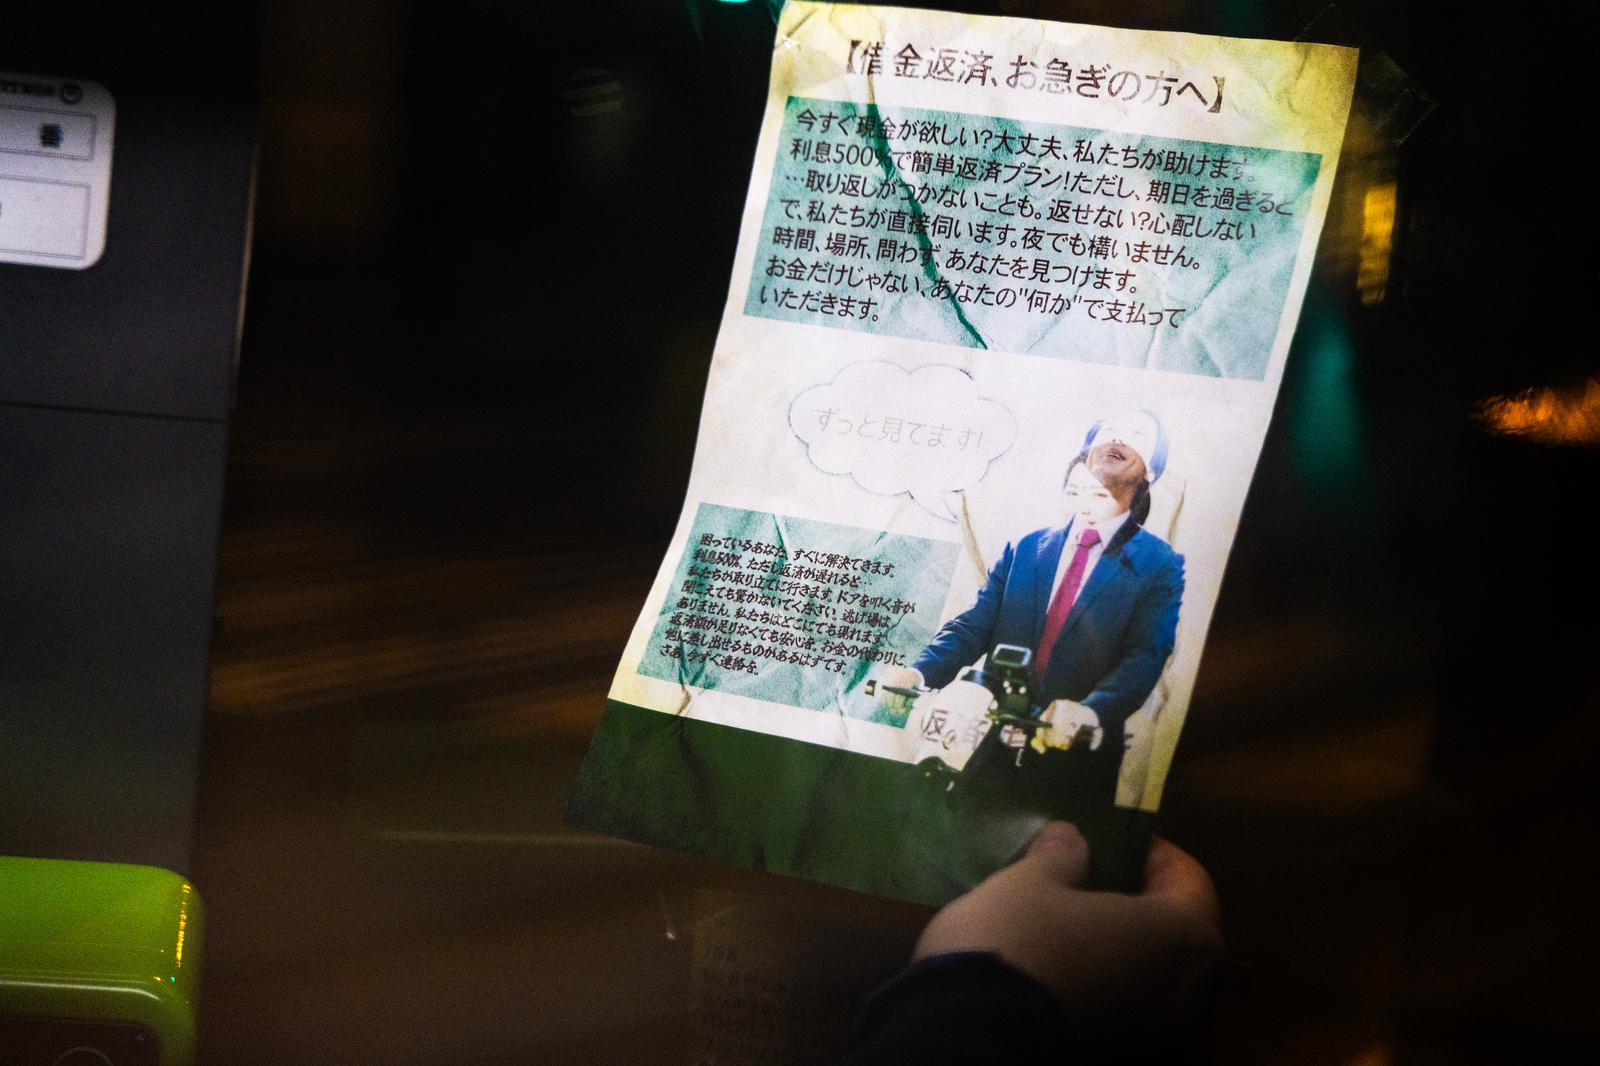 【借金返済、お急ぎの方へ】
今すぐ現金が欲しい?大丈夫、私たちが助けます。
利息500%で簡単返済プラン!ただし、期日を過ぎると
…取り返しがつかないことも。返せない?心配しない
で、私たちが直接伺います。夜でも構いません。
時間、場所、問わず、あなたを見つけます。
お金だけじゃない、あなたの"何か"で支払って
いただきます。
ずっと見てます!
困っているあなた、すぐに解決できます。
利息500%、ただし返済が遅れると…
私たちが取り立てに行きます。ドアを叩く音が
聞こえても驚かないでください。逃げ場は
ありません。私たちはどこにでも現れます。
返済額が足りなくても安心を。お金の代わりに、
他に差し出せるものがあるはずです。
さあ、今すぐ連絡を。
返済